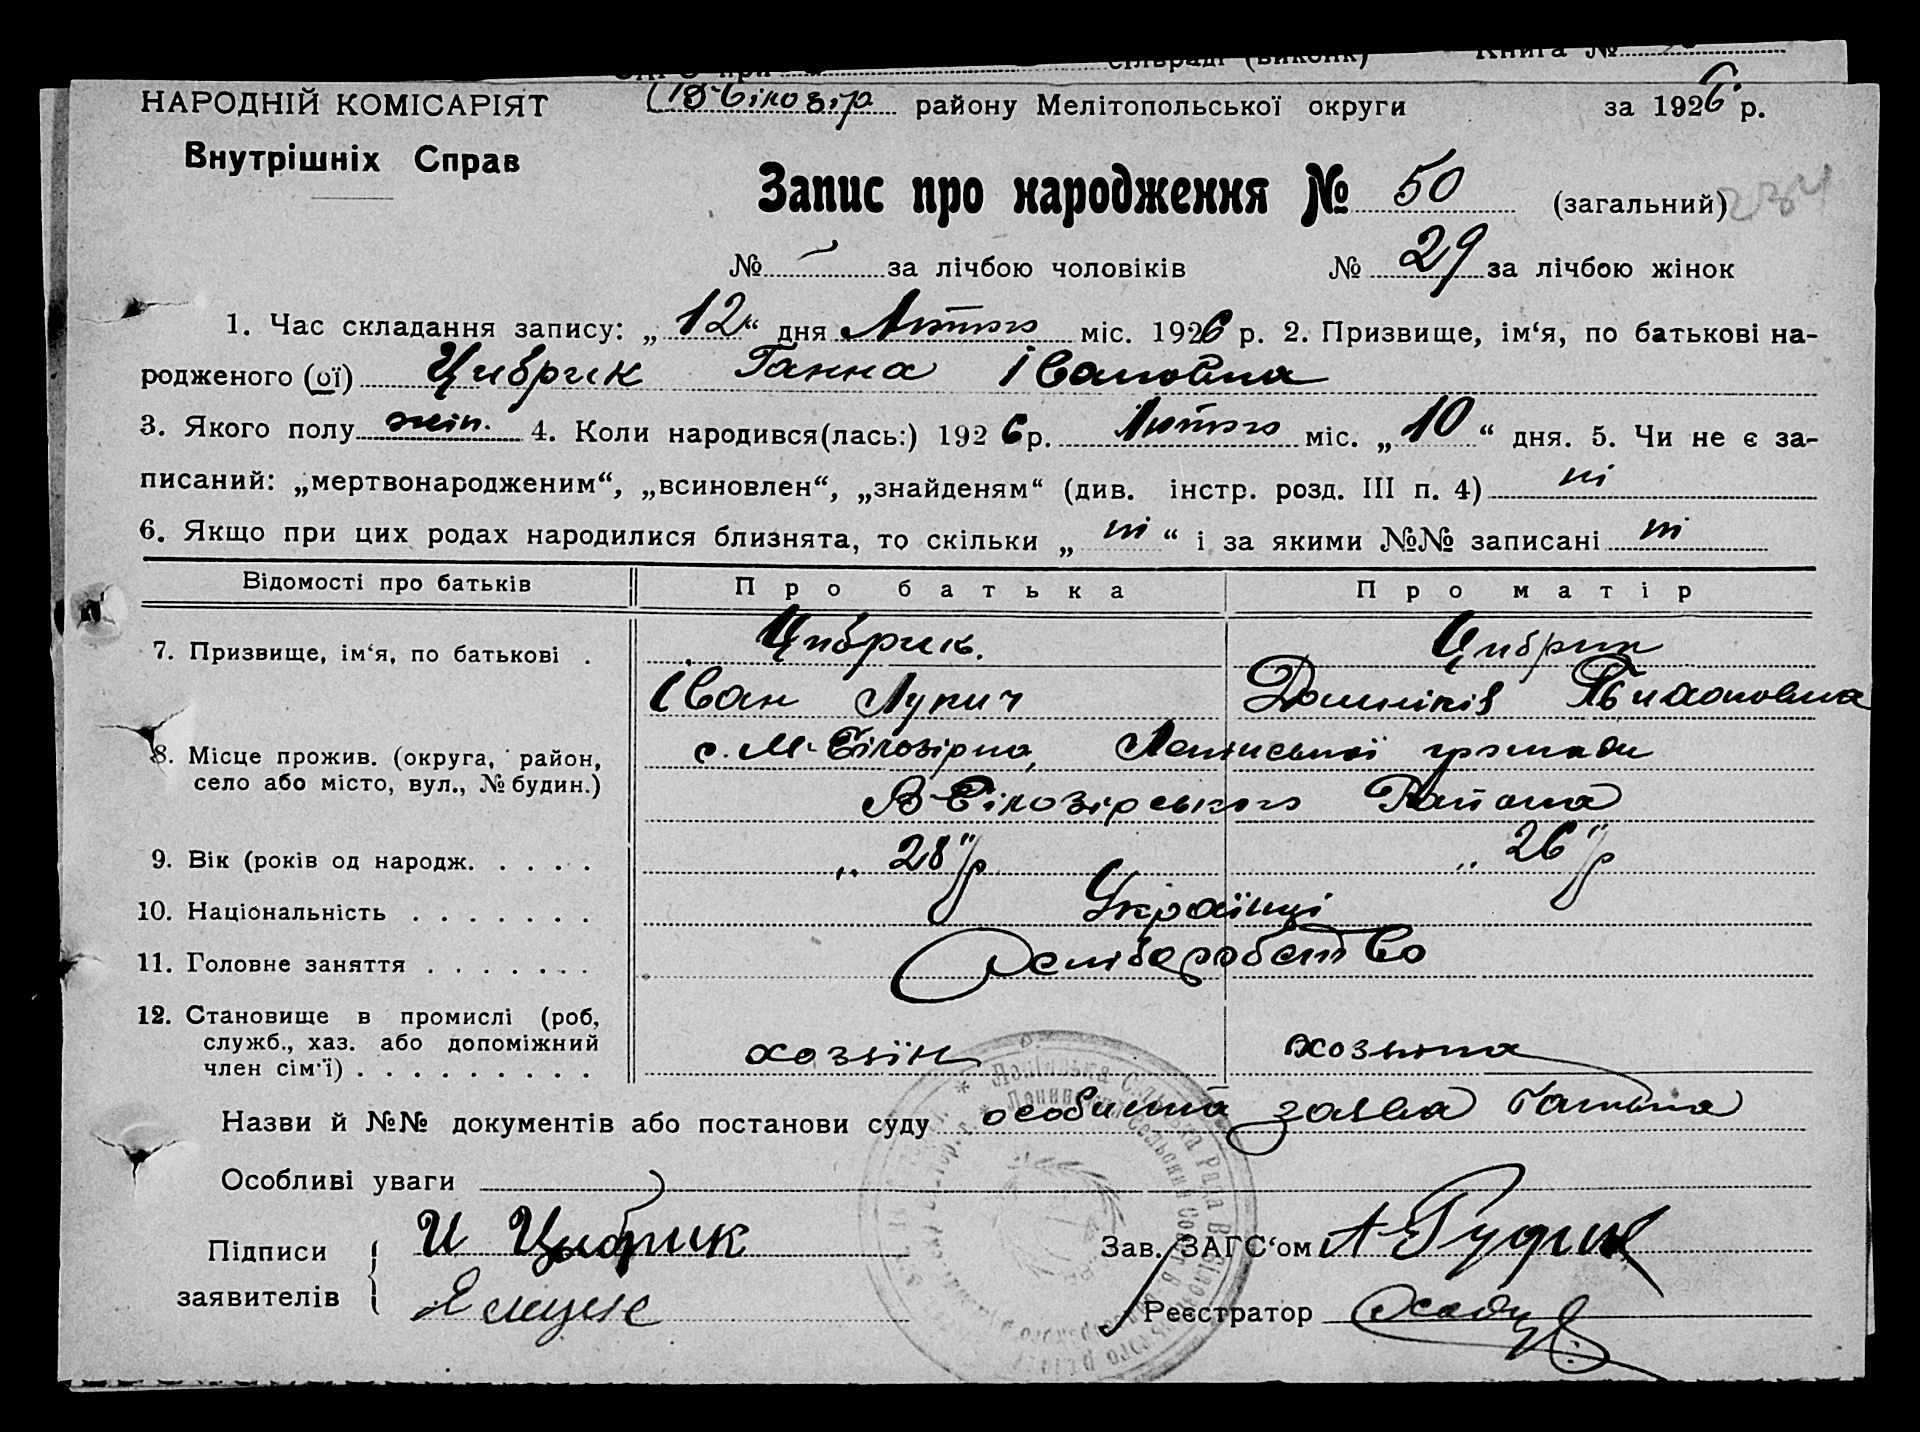 сільраді (виконк) Книга №
НАРОДНІЙ КОМІСАРІЯТ
В-Білозір району Мелітопольської округи за 1926 р.
Внутрішніх Справ
Запис про народження № 50 (загальний) 234
№ — за лічбою чоловіків № 29 за лічбою жінок
1. Час складання запису: „12“ дня Лютого міс. 1926 р. 2. Призвище, ім‘я, по батькові на-
родженого (ої) Цибрик Ганна Івановна
3. Якого полу жін. 4. Коли народився(лась:) 1926 р. Лютого міс. „10“ дня. 5. Чи не є за-
писаний: „мертвонародженим“, „всиновлен“, „знайденям“ (див. інстр. розд. III п. 4) ні
6. Якщо при цих родах народилися близнята, то скільки „ні“ і за якими №№ записані ні
Відомості про батьків Про батька Про матір
7. Призвище, ім‘я, по батькові . Цибрик. Цибрик
Іван Лукич
8. Місце прожив. (округа, район, село або місто, вул., № будин.) с. М-Білозірка, громади
В-Білозірського Района
9. Вік (років од народж. . . . . „28“ р „26“ р
10. Національність . . . . . . . Українці
11. Головне заняття . . . . . . .
12. Становище в промислі (роб, служб., хаз. або допоміжний член сім‘ї) . . . . . . . . . хозяїн хозяйка
Назви й №№ документів або постанови суду особиста заява батька
Особливі уваги
Підписи заявителів И Цибрик
Зав. ЗАГС‘ом А Рудик
Реєстратор